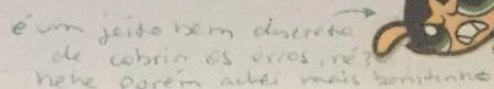 é um jeito bem discreto
de cobrir os erros, né?
hehe porém achei mais bonitinho